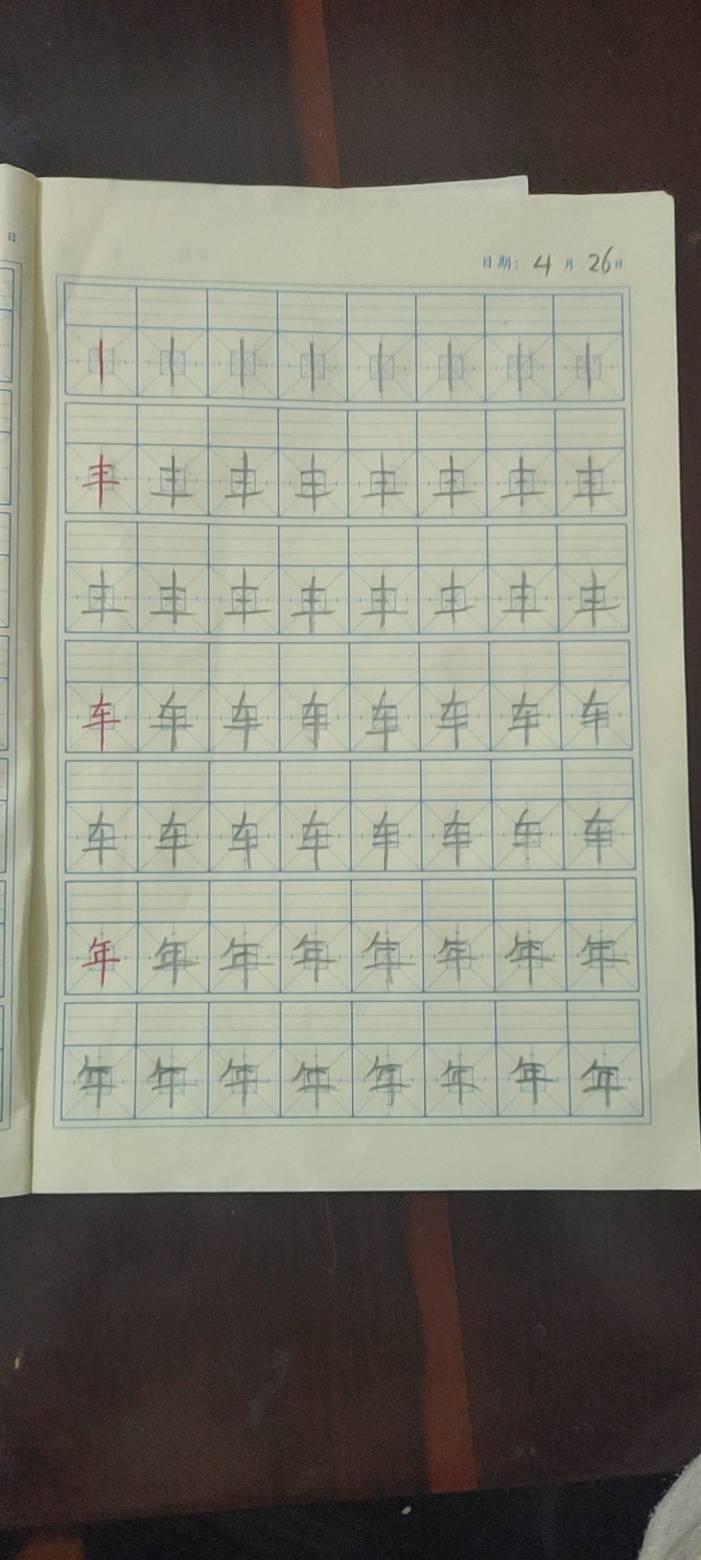 日
日期：4月26日
丨丨丨丨丨丨丨丨
丰丰丰丰丰丰丰丰
丰丰丰丰丰丰丰丰
车车车车车车车车
车车车车车车车车
年年年年年年年年
年年年年年年年年